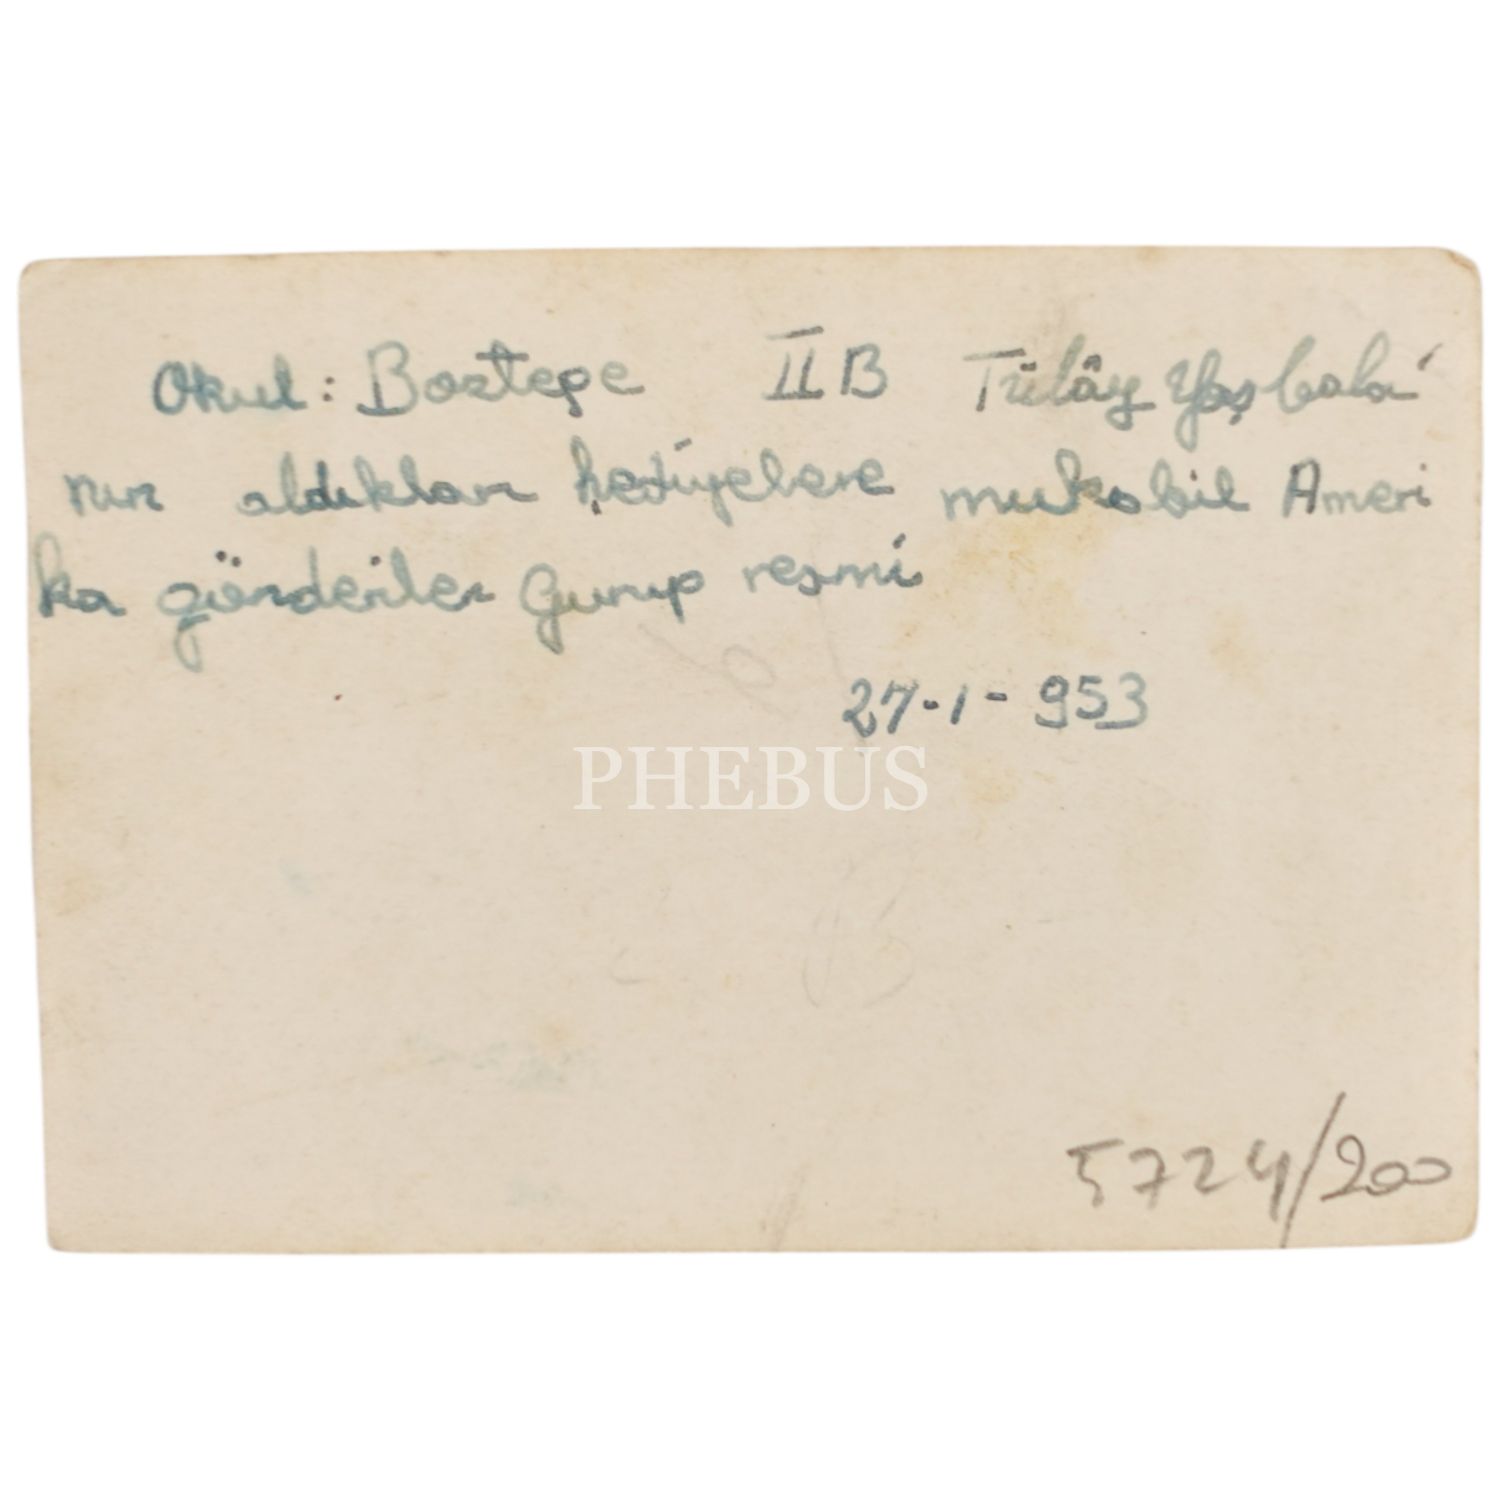 Okul: Boztepe IIB Tülây Yaşbala
nın aldıkları hediyelere mukabil Ameri
ka gönderilen Gurup resmi
27-1-953
PHEBUS
5724/200